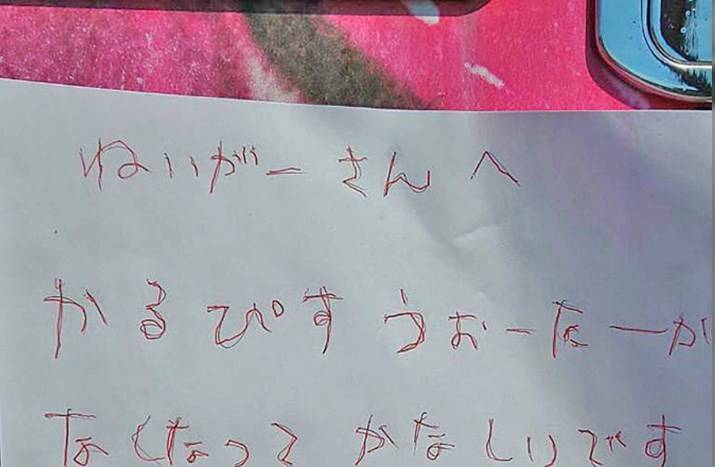 ねいがーさんへ
かるぴすうぉーたーが
なくなって かなしいです